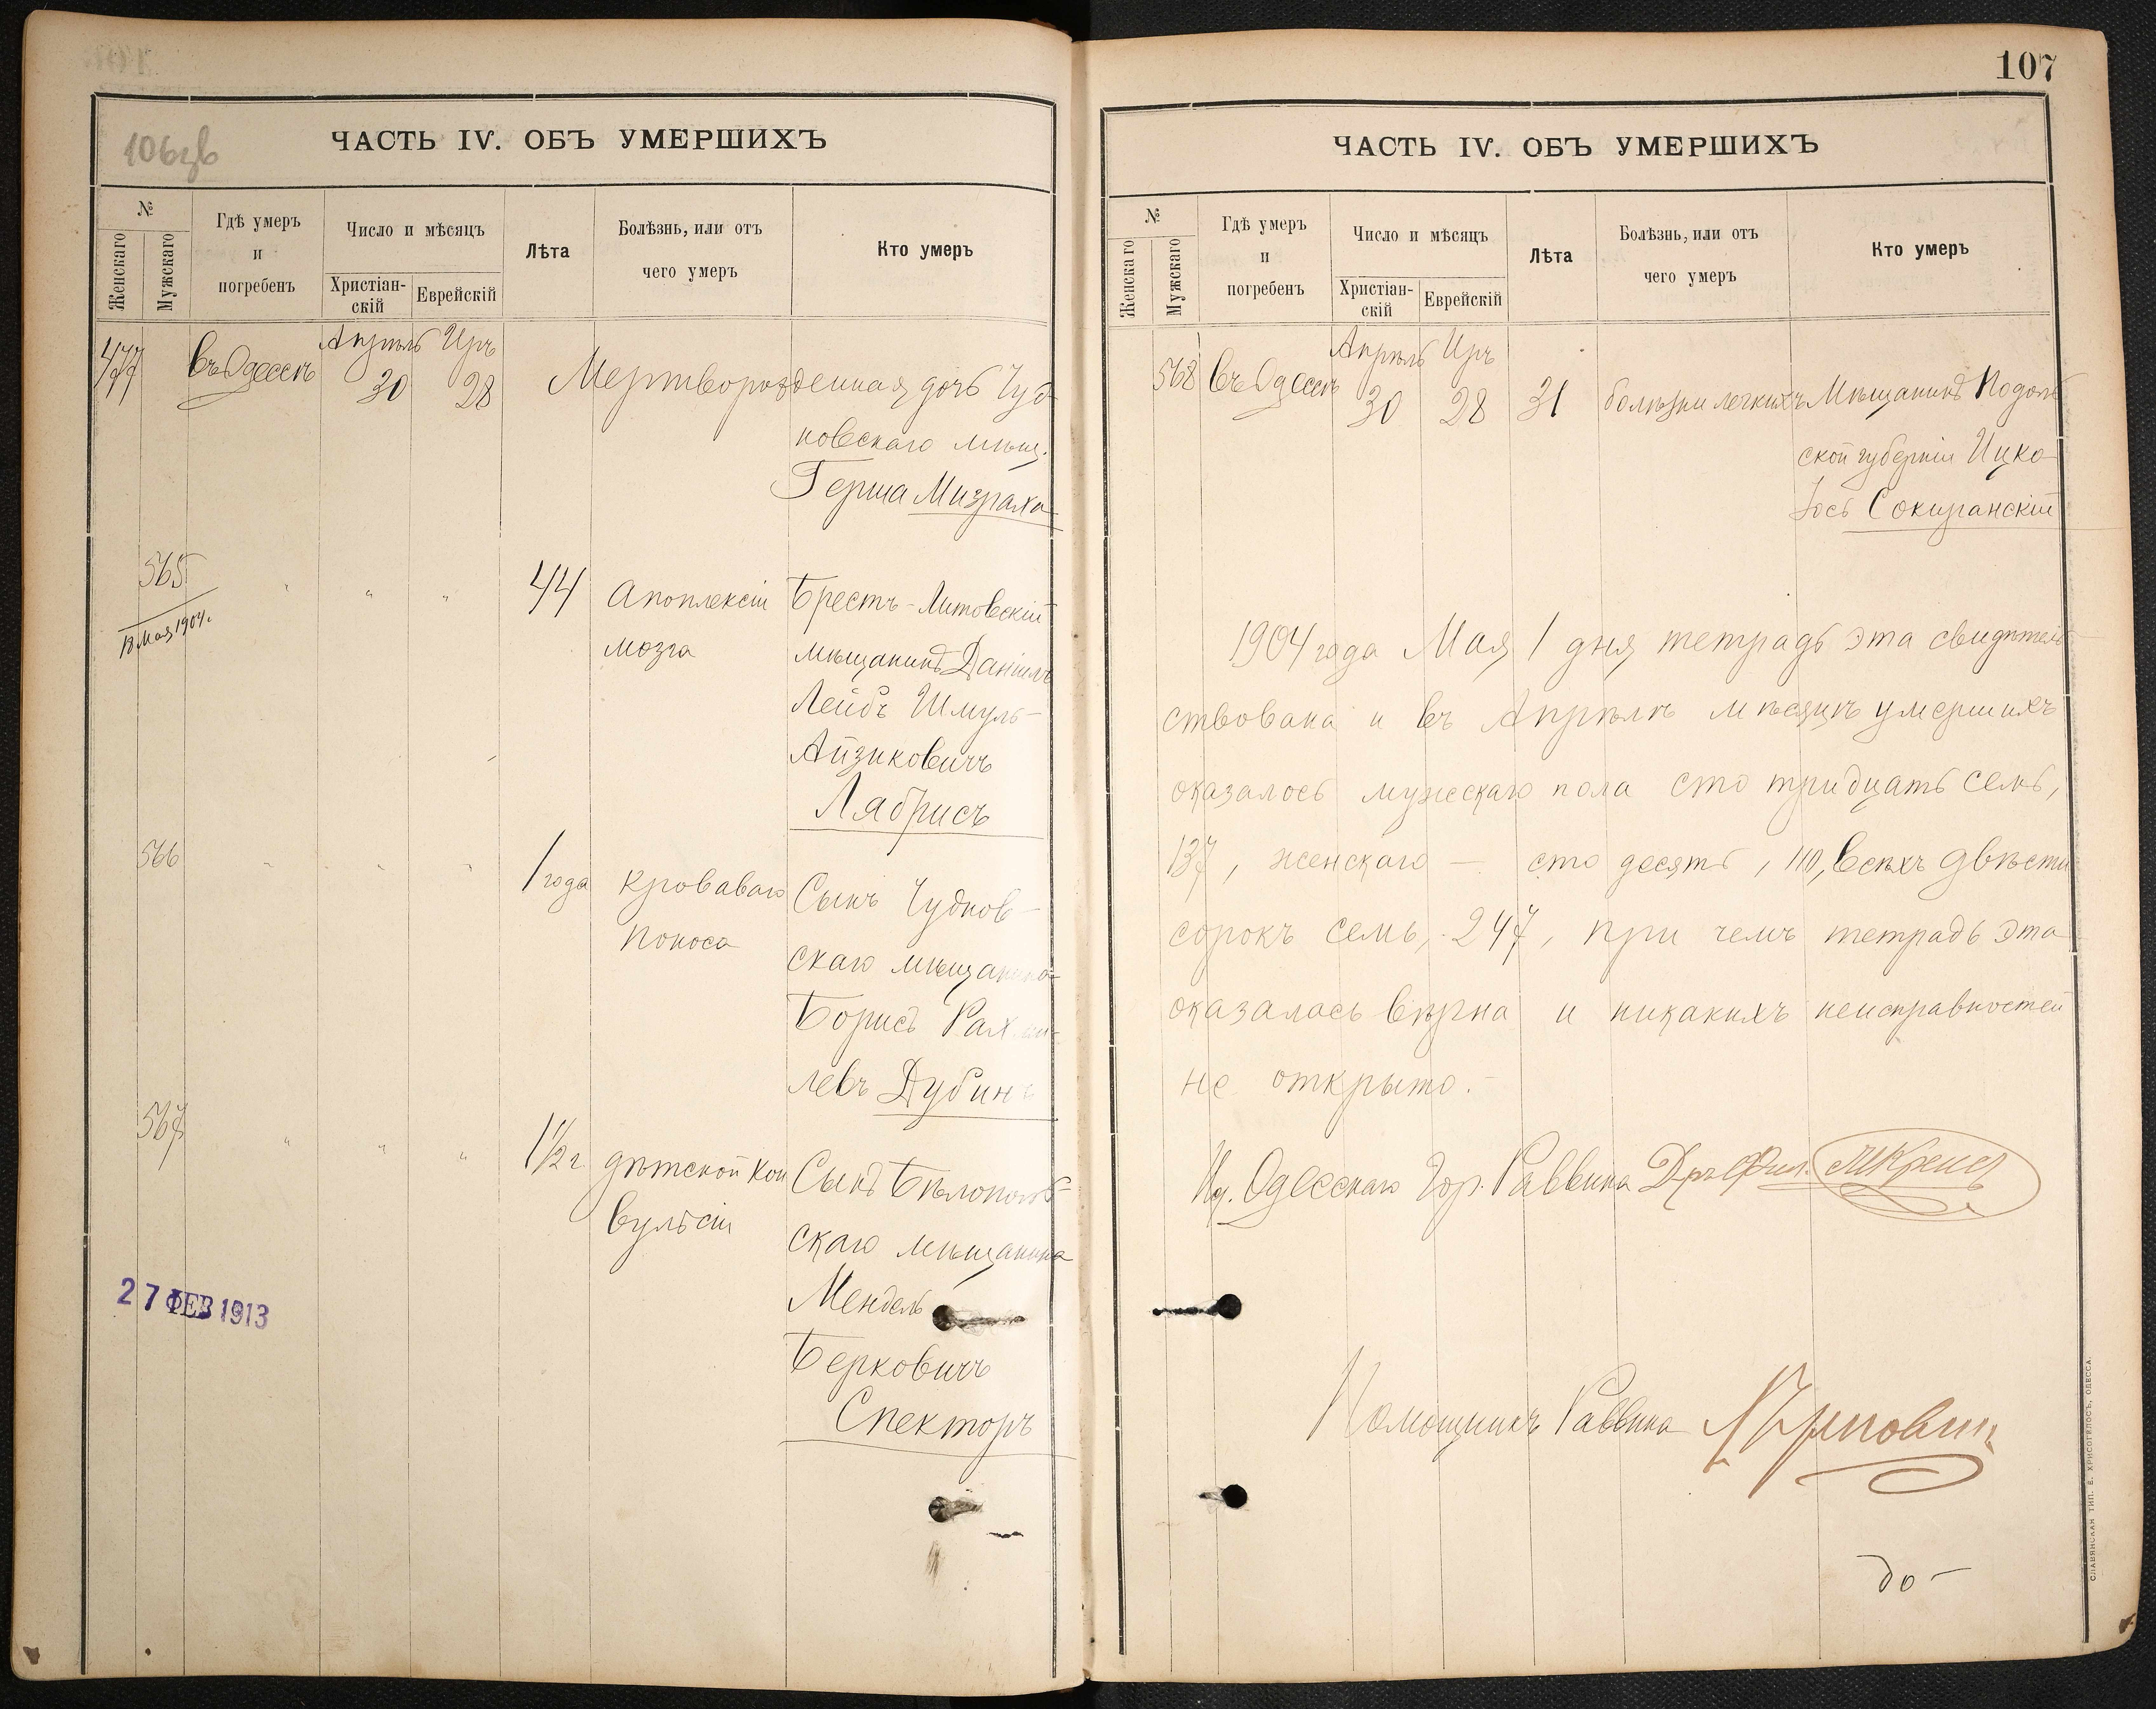 106зв
ЧАСТЬ IV. ОБЪ УМЕРШИХЪ
№
Женскаго
Мужскаго
Гдѣ умеръ
и
погребенъ
Число и мѣсяцъ
Христіан-
скій
Еврейскій
Лѣта
Болѣзнь, или отъ
чего умеръ
Кто умеръ
477 въ Одессѣ Апрѣль 30 Иръ 28 Мертворожденная дочь Чуд
новскаго мѣщ.
Герша Мизраха
565 " " " 44 Апоплексіи Брестъ-Литовскій
18 Мая 1904 г.
мозга мѣщанинъ Даніилъ
Лейбъ Шмуль-
Айзиковичъ
Лябрисъ
566 " " " 1 года кроваваго Сынъ Чуднов-
поноса скаго мѣщанина
Борисъ Рахми-
левъ Дубинъ
567 " " " 1½ г. дѣтской кон Сынъ Бѣлополь-
вульсіи скаго мѣщанина
Мендель
Берковичъ
Спекторъ
27 ФЕВ 1913
107
ЧАСТЬ IV. ОБЪ УМЕРШИХЪ
№
Женскаго
Мужскаго
Гдѣ умеръ
и
погребенъ
Число и мѣсяцъ
Христіан-
скій
Еврейскій
Лѣта
Болѣзнь, или отъ
чего умеръ
Кто умеръ
568 въ Одессѣ Апрѣль 30 Иръ 28 31 болѣзни легкихъ Мѣщанинъ Подоль
ской губерніи Ицко
Іось Сокирянскій
1904 года Мая 1 дня тетрадь эта свидѣтель-
ствована и въ Апрѣлѣ мѣсяцѣ умершихъ
оказалось мужескаго пола сто тридцать семь,
137, женскаго — сто десять, 110, всѣхъ двѣсти
сорокъ семь, 247, при чемъ тетрадь эта
оказалась вѣрна и никакихъ неисправностей
не открыто.-
Ид. Одесскаго Гор. Раввина Дръ Фил. Крепсъ
Помощникъ Раввина
до-
СЛАВЯНСКАЯ ТИП. Е. ХРИСОГЕЛОСЪ, ОДЕССА.